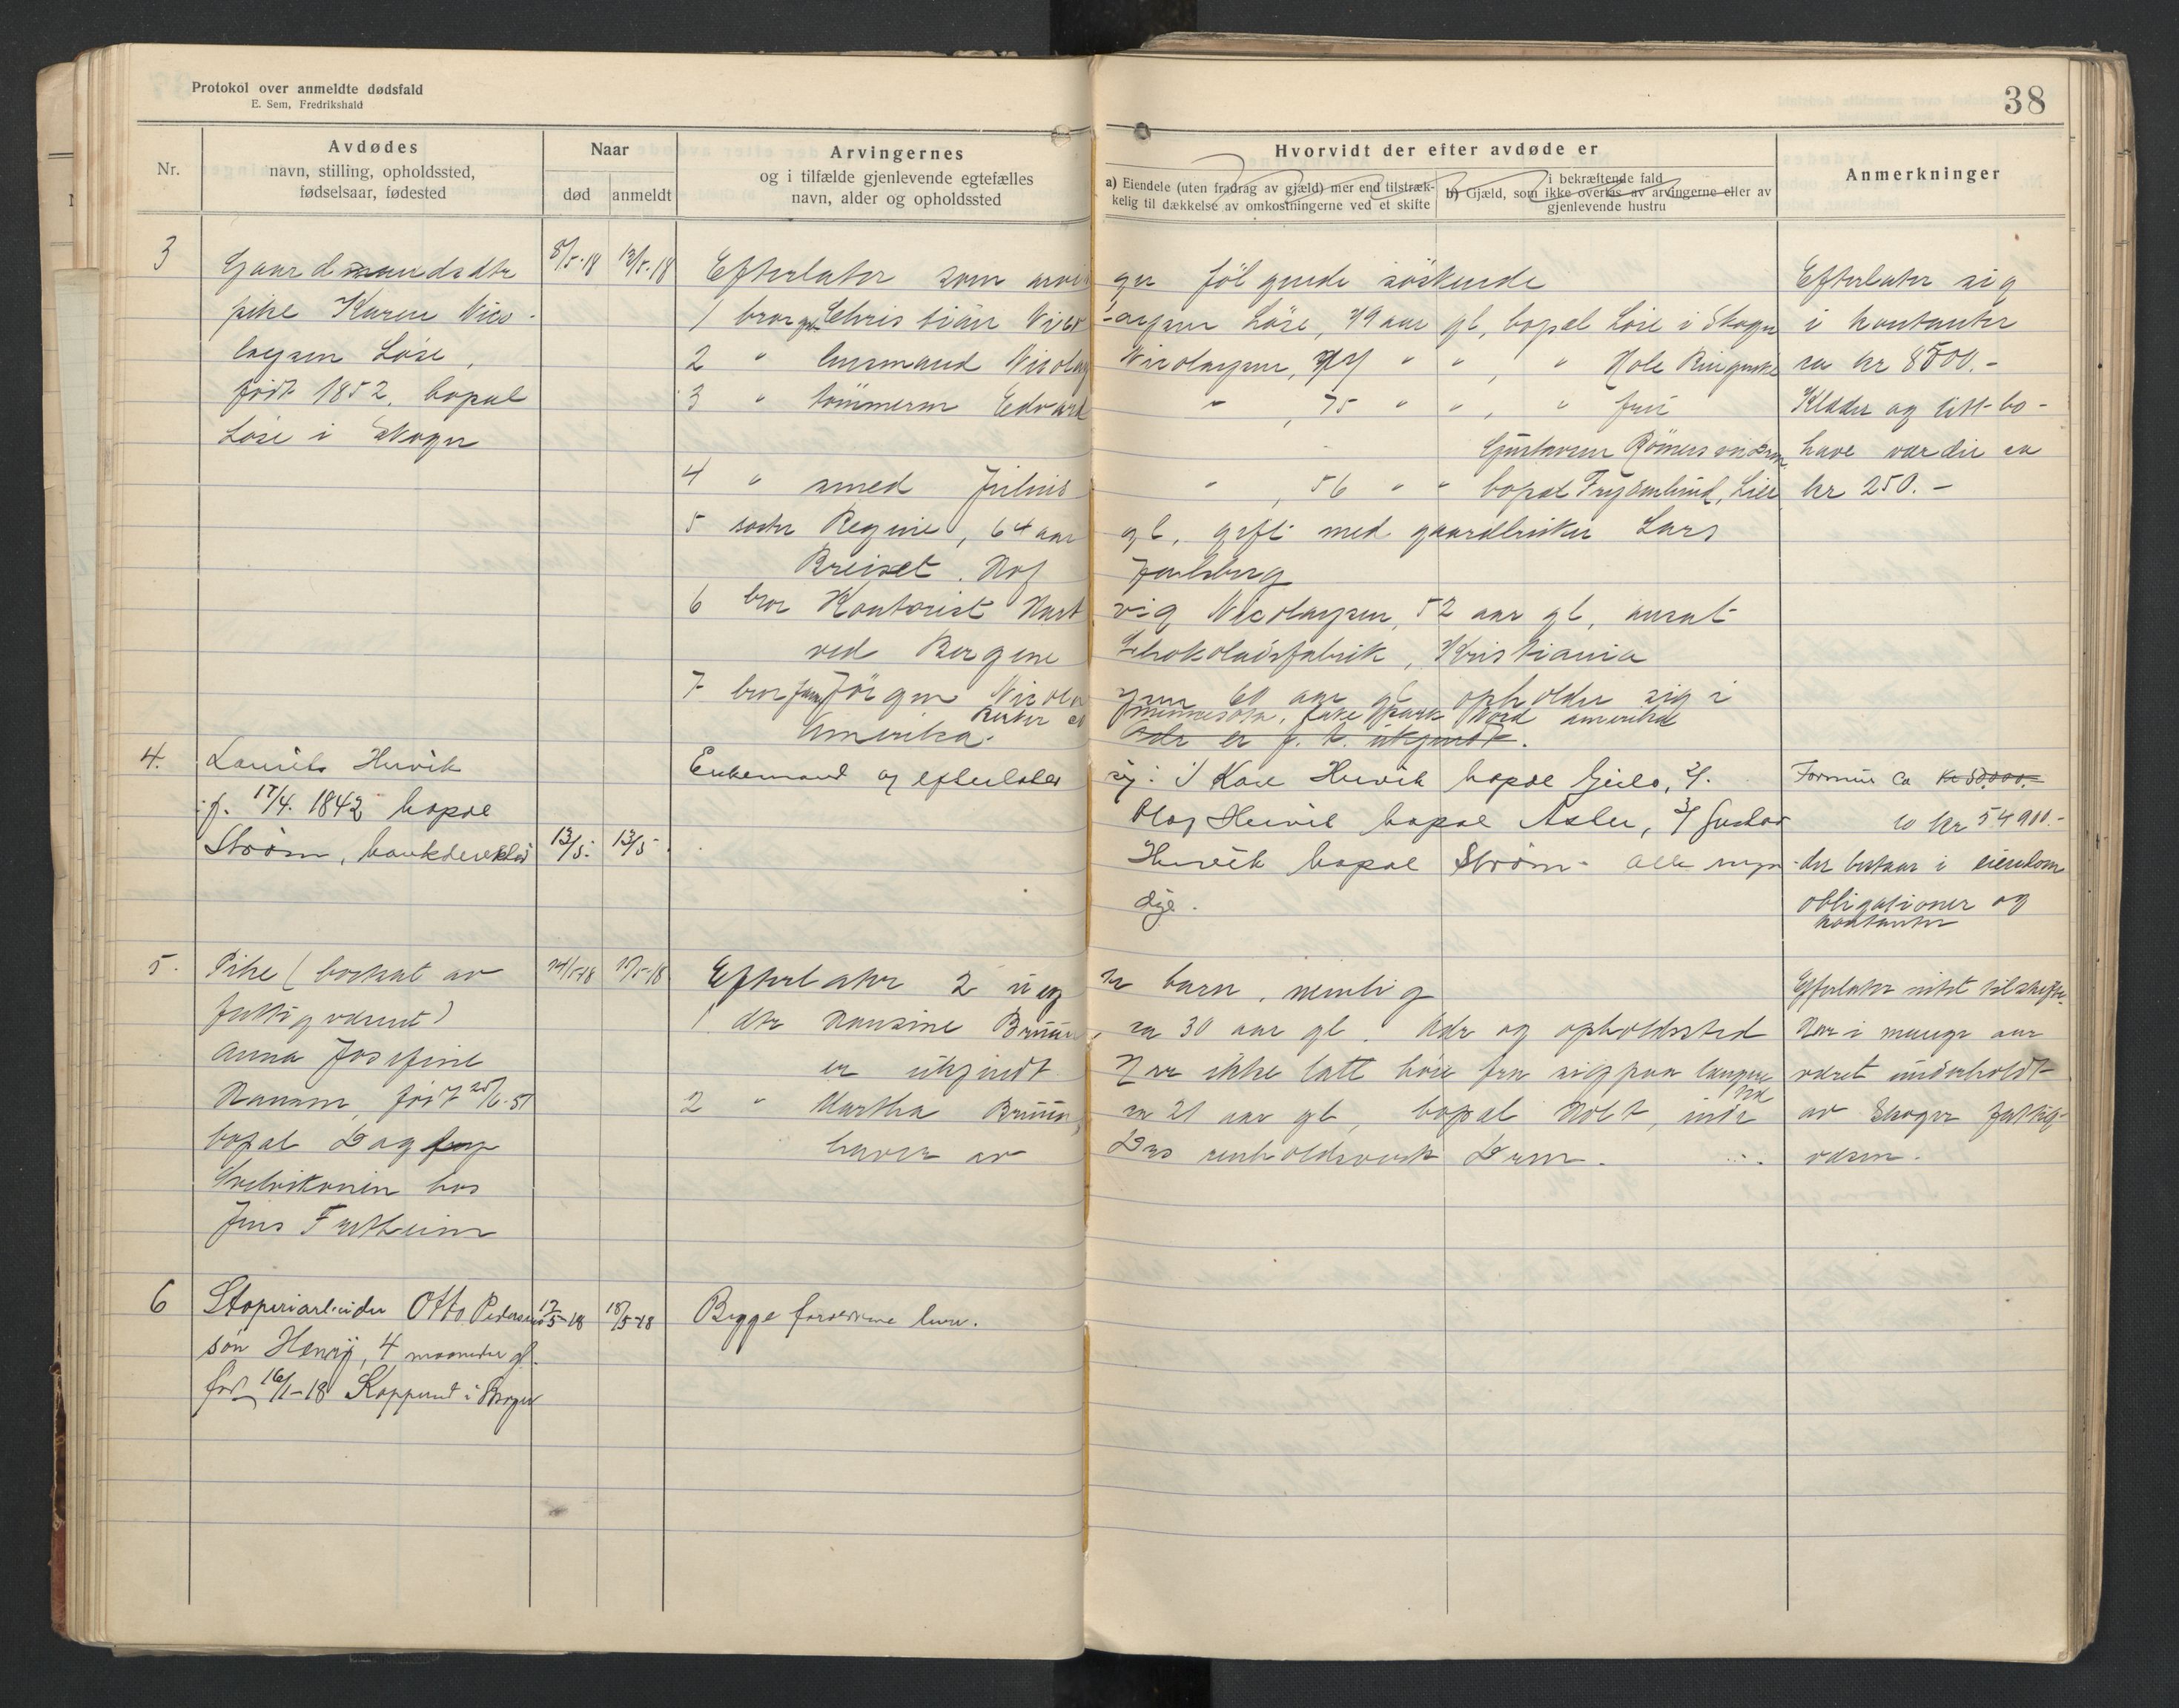 Protokol over anmeldte dødsfald
E. Sem, Fredrikshald
38
Nr.
Avdødes
navn, stilling, opholdssted,
fødselsaar, fødested
Naar
død anmeldt
Arvingernes
og i tilfælde gjenlevende egtefælles
navn, alder og opholdssted
Hvorvidt der efter avdøde er
a) Eiendele (uten fradrag av gjæld) mer end tilstræk-
kelig til dækkelse av omkostningerne ved et skifte
i bekræftende fald
b) Gjæld, som ikke overtas av arvingerne eller av
gjenlevende hustru
Anmerkninger
3
Gaardmandsdtr
pike Karen Nico-
laysen Löse,
født 1852, bopæl
Löse i Skoger
8/5-18 13/5-18
Efterlater som arvinger følgende søskende
1 bror Christian Nicolaysen Löse, 79 aar gl, bopæl Löse i Skoger
2 " Nicolay Nicolaysen, " " , " Hole Ringerike
3 " tømmerm Edvard " , 75 " " , "
4 " smed Julius " , 56 " " bopæl , Lier
5 søster Regine, 64 aar gl, gift med gaardbruker Lars
Breiset. Hof Jarlsberg
6 bror Kontorist Hartvig Nicolaysen, 52 aar gl, ansat
ved Bergene Chokoladefabrik, Kristiania
7 bror Jørgen Nicolaysen 60 aar gl opholder sig i
Minnesota, Lake Park Nord amerika
Amerika. Adr er f. t. ukjendt.
Efterlater sig
i kontanter
ca kr 8500.-
Klæder og litt bo-
have værdie ca
kr 250.-
4.
Laurits Hervik
f. 17/4. 1842 bopæl
Strøm, bankdirektør
13/5. 13/5
Enkemand og efterlater sig: 1/ Kare Hervik bopæl Geilo, 2/.
Olaf Hervik bopæl Asker, 3/ Gustav
Hervik bopæl Strøm - alle myn-
dige.
Formue ca kr 50.000.-
kr 54900.-
der bestaar i eiendom
obligationer og
kontanter
5.
Pike (bortsat av
fattigvæsenet)
Anna Josefine
Hansen, født 25/6-51
bopæl
Svelvikveien hos
Jens
14/5-18 17/5-18
Efterlater 2 uegte barn, nemlig
1 dtr Hansine Bruun, ca 30 aar gl. Adr og opholdssted
er ukjendt Har ikke latt høre fra sig paa længere
tid
2 " Martha Bruun, ca 21 aar gl, bopæl Holt,
av Drs renholdsverk Drm.
Efterlater intet til skifte.
Har i mange aar
været underholdt
av Skoger fattig-
væsen.
6
Støperiarbeider Otto Pedersens
søn Henry, 4 maaneder gl.
født 16/1-18 Kopperud i Skoger
17/5-18 18/5-18
Begge forældrene lever.